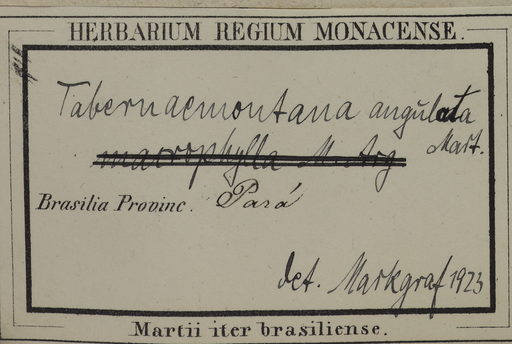 HERBARIUM REGIUM MONACENSE.
Tabernaemontana angulata
Mart.
macrophylla M. Arg
Brasilia Provinc. Pará
det. Markgraf 1923
Martii iter brasiliense.